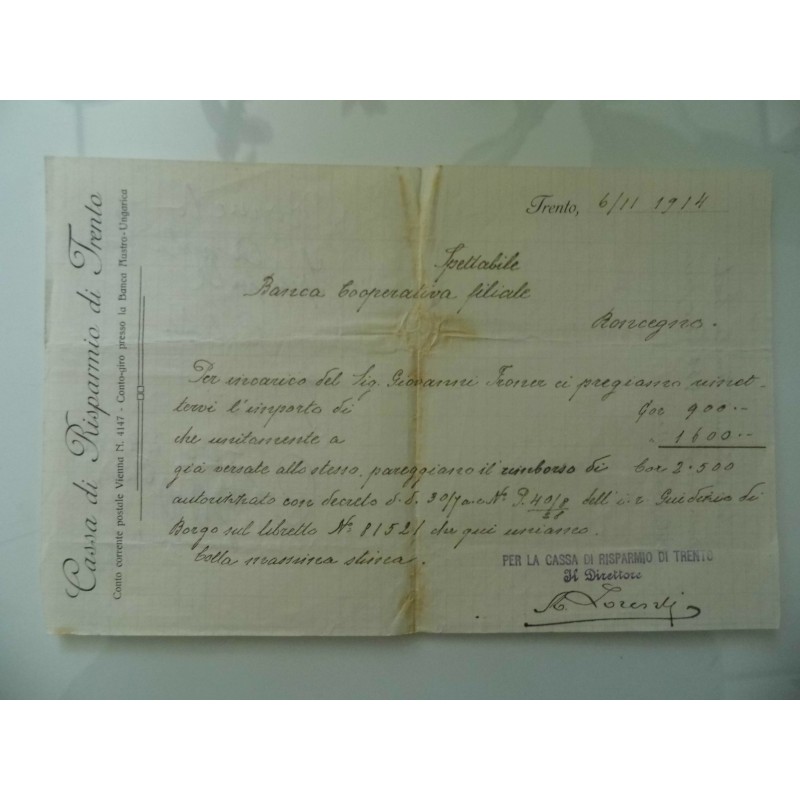 Cassa di Risparmio di Trento
Conto corrente postale Vienna N. 4147 - Conto-giro presso la Banca Austro-Ungarica
Trento, 6/11 1914
Spettabile
Banca Cooperativa filiale
Roncegno.
Per incarico del Sig. Giovanni Froner ci pregiamo rimet-
tervi l'importo di Cor 900.--
che unitamente a " 1600.--
già versate allo stesso, pareggiano il rimborso di Cor 2.500
autorizzato con decreto d.d. 30/7 a.c. No P. 40/8 dell' i. r. Giudizio di
Borgo sul libretto No 81521 che qui uniamo.
Colla massima stima.
PER LA CASSA DI RISPARMIO DI TRENTO
Il Direttore